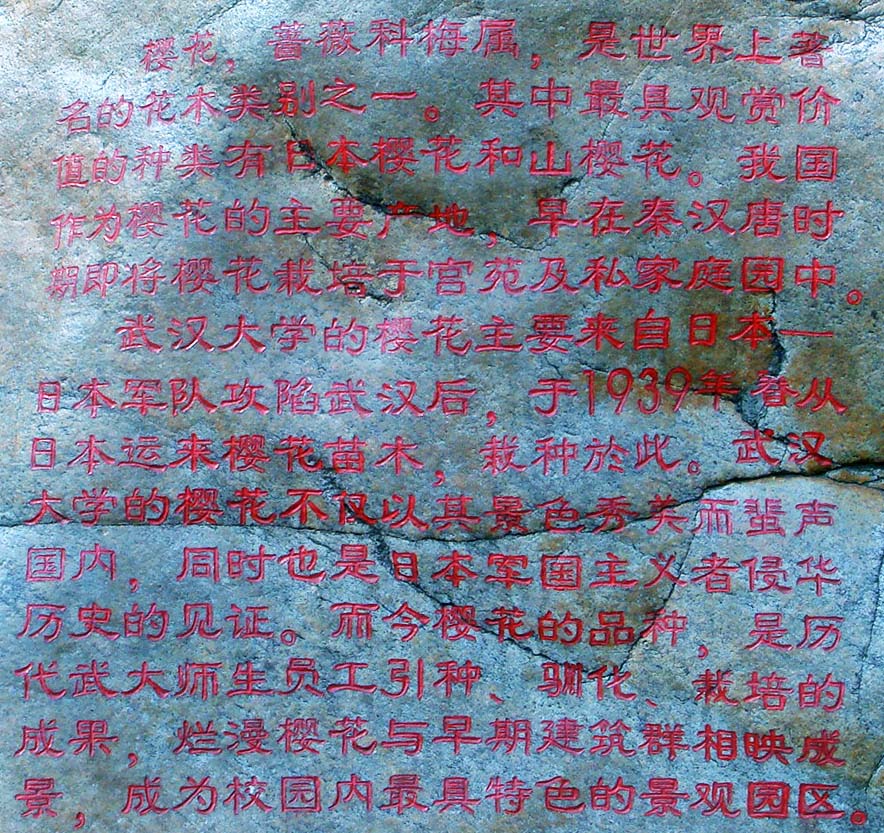 樱花，蔷薇科梅属，是世界上著
名的花木类别之一。其中最具观赏价
值的种类有日本樱花和山樱花。我国
作为樱花的主要产地，早在秦汉唐时
期即将樱花栽培于宫苑及私家庭园中。
武汉大学的樱花主要来自日本—
日本军队攻陷武汉后，于1939年春从
日本运来樱花苗木，栽种於此。武汉
大学的樱花不仅以其景色秀美而蜚声
国内，同时也是日本军国主义者侵华
历史的见证。而今樱花的品种，是历
代武大师生员工引种、驯化、栽培的
成果，烂漫樱花与早期建筑群相映成
景，成为校园内最具特色的景观园区。